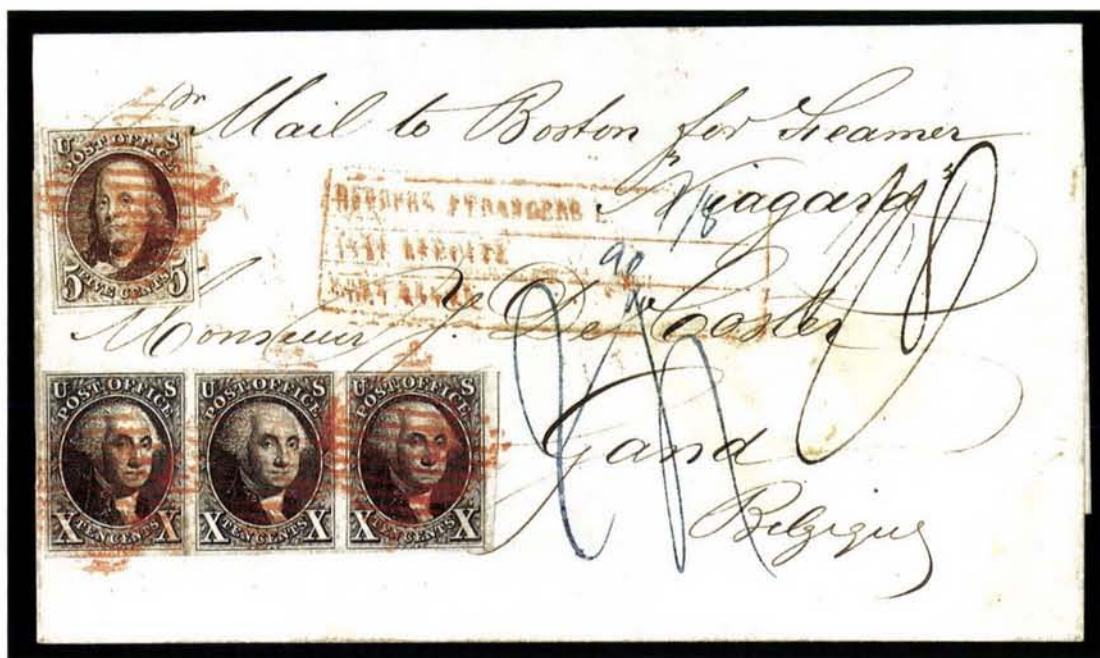 pr Mail to Boston for Steamer
"Niagara"
U S
POST OFFICE
5 FIVE CENTS 5
Monsieur J. De Coster
90
U S
POST OFFICE
X TEN CENTS X
U S
POST OFFICE
X TEN CENTS X
U S
POST OFFICE
X TEN CENTS X
Gand
Belgique